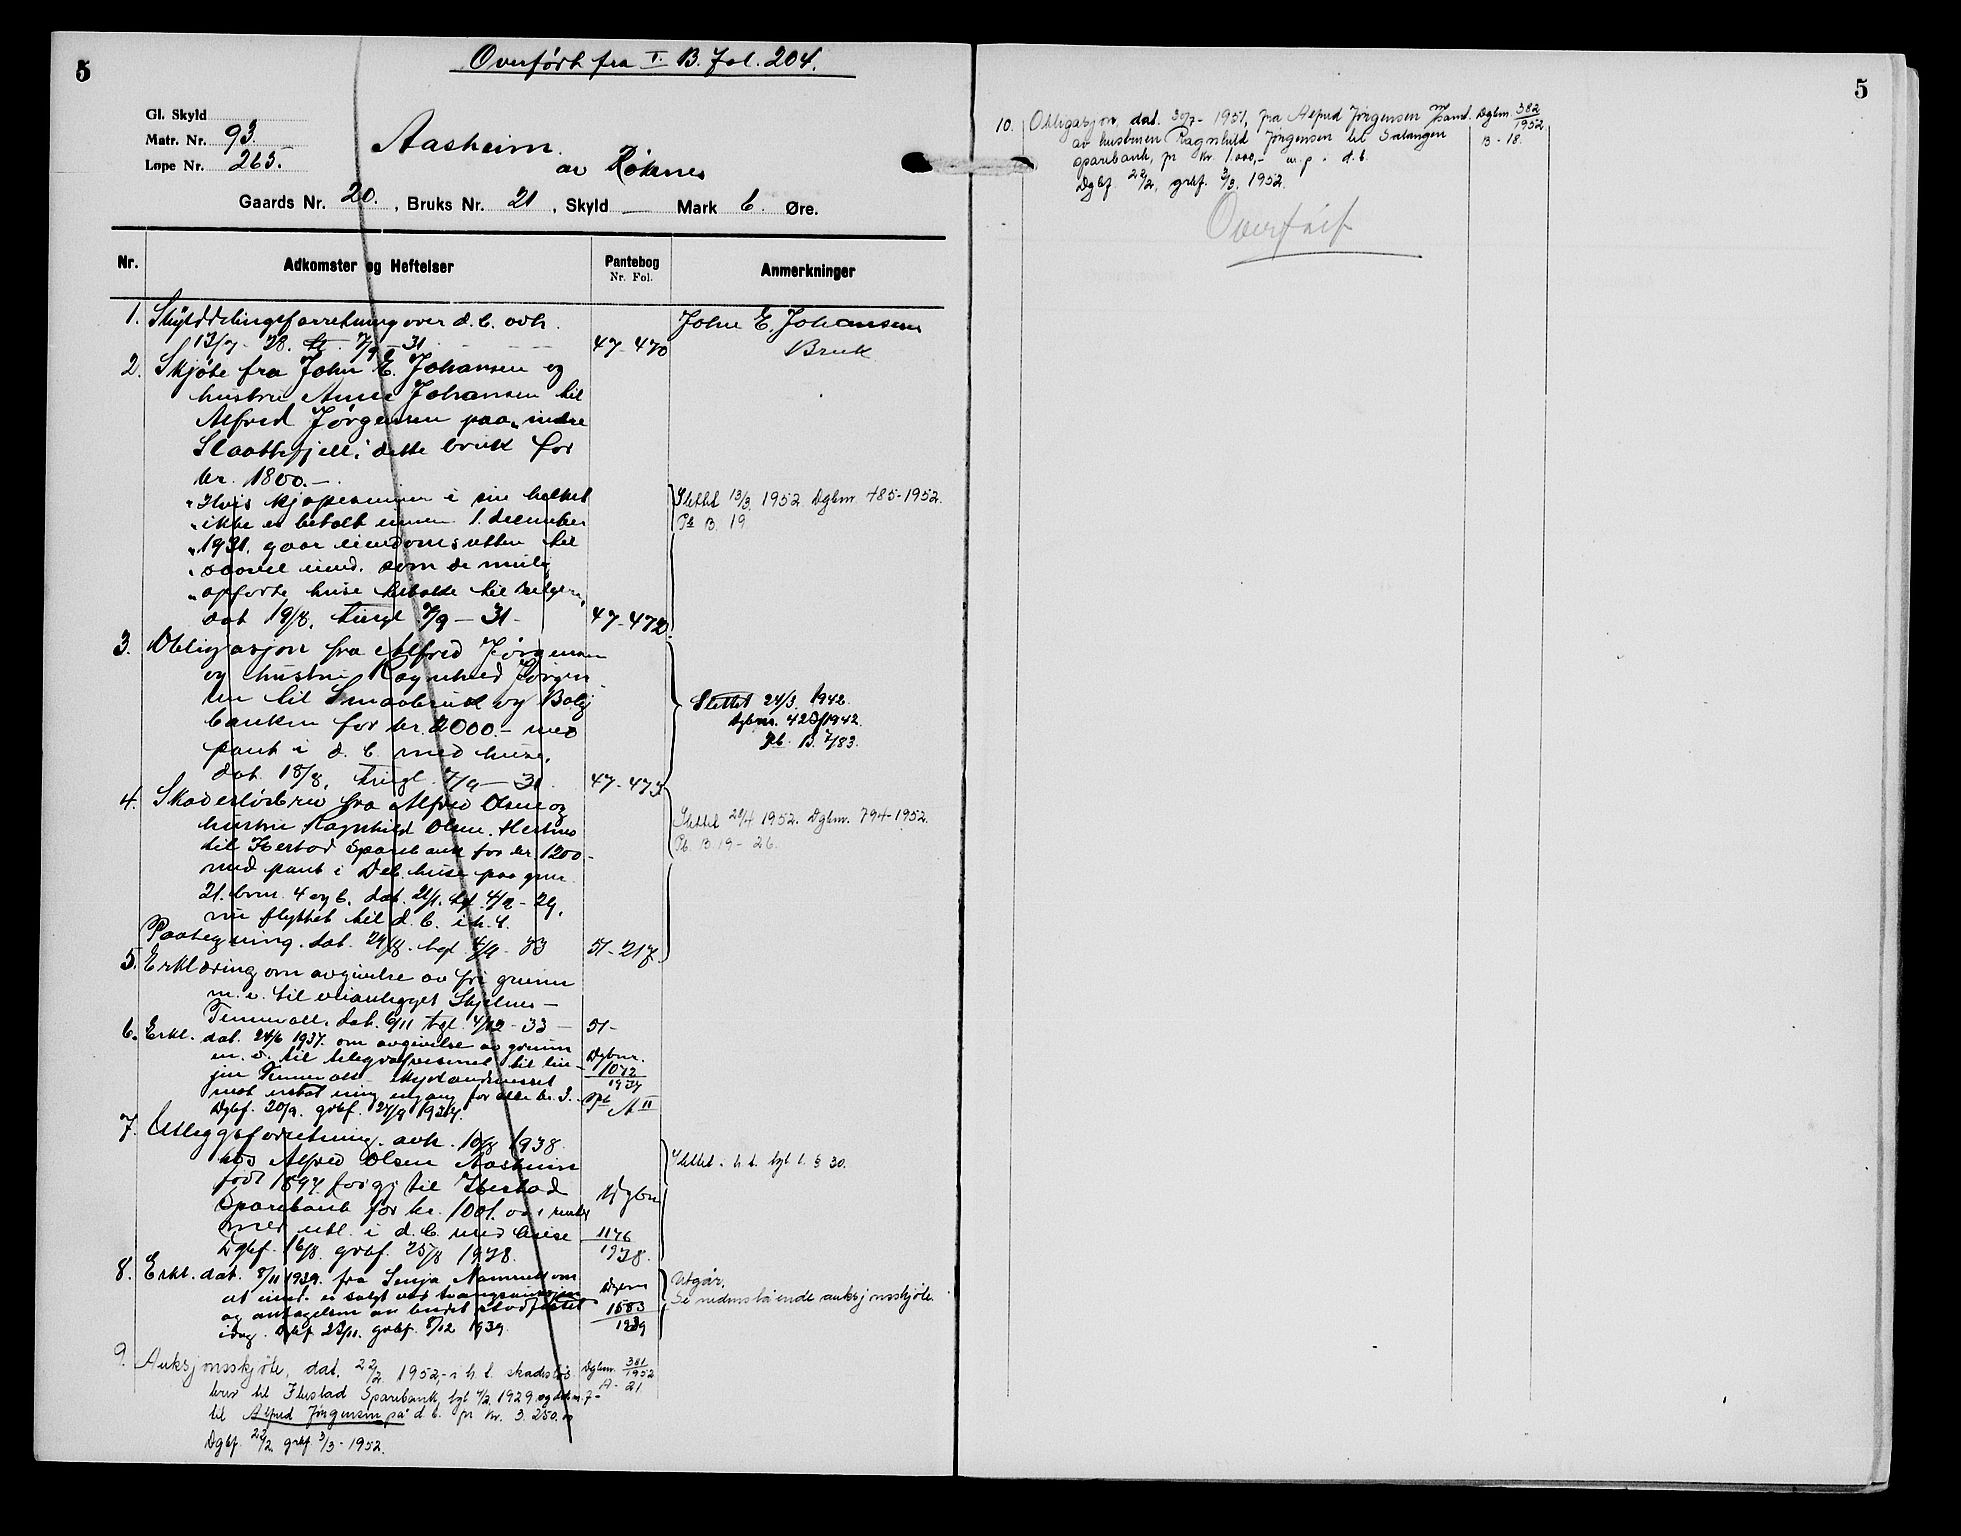 5
Overført fra I. B. Fol. 204.
Gl. Skyld
Matr. Nr. 93.
Løpe Nr. 265.
Aasheim
av Röknes
Gaards Nr. 20. , Bruks Nr. 21 , Skyld — Mark 6 Øre.
Nr. Adkomster og Heftelser Pantebog Nr. Fol. Anmerkninger
1. Skylddelingsforretning over d. b. avh. John E. Johansen
13/7 - 28. tgl. 7/9 - 31 47-470 Bruk
2. Skjøte fra John E. Johansen og
hustru Anne Johansen til
Alfred Jørgensen paa „indre
Slaattefjell", dette bruk for
kr. 1800.-
„Hvis kjøpesummen i sin helhet
„ikke er betalt innen 1. december
„1931, gaar eiendomsretten til
„saavel eiend. som de mulig
„opførte huse tilbake til selgeren"
dat 19/8, tingl 7/9 - 31 - 47-472
Slettet 13/3 1952 Dgbnr. 485-1952.
Pb B. 19
3. Obligasjon fra Alfred Jørgensen
og hustru Ragnhild Jørgen-
sen til Smaabruk og Bolig
banken for kr. 2000.- med
pant i d. b. med huse.
dat. 18/8, tingl. 7/9 - 31. 47-473
Slettet 24/3. 1942.
Dgbnr. 423/1942.
Pb. B. 7/83.
4. Skadesløsbrev fra Alfred Olsen og
hustru Ragnhild Olsen. Hestnes
til Ibestad Sparebank for kr. 1200-
med pant i Deb. huse paa gnr.
21. bnr. 4 og 6. dat. 21/1. tgl. 4/2 - 29.
nu flyttet til d. b. i h. t.
Paategning. dat. 24/8. tgl. 4/9 - 33 51-217
Slettet 28/4 1952. Dgbnr. 794-1952.
Pb. B. 19 - 26.
5. Erklæring om avgivelse av fri grunn
m. v. til veianlegget Skjelnes -
Tennevoll. dat. 6/11 tgl. 4/12 - 33 - 51-
6. Erkl. dat. 24/6 1937. om avgivelse av grunn
m. v. til telegrafvesenet til lin-
jen Tennevoll -
mot erstatning engang for alle kr. 3.-
Dgbf. 20/9. grbf. 27/9 1937.
Dgbnr. 1072/1937
Pb A II
7. Utleggsforretning. avh. 10/8 1938.
hos Alfred Olsen Aasheim
født 1897. for gj. til Ibestad
Sparebank for kr. 1001.00 + renter
med utl. i d. b. med huse
Dgbf. 16/8. grbf. 25/8 1938.
Dgbnr 1176/1938.
Slettet i h. t. tgl. l. § 30.
8. Erkl. dat. 8/11 1939. fra Senja Namsrett om
at eiend. er solgt ved tvangsauksjon
og antagelsen av budet stadfestet
idag. Dgbf 23/11. grbf. 8/12 1939.
Dgbnr 1583/1939
Utgår.
Se nedenstående auksjonsskjøte.
9. Auksjonsskjøte, dat. 22/2 1952, - i h. t. skadesløs-
brev til Ibestad Sparebank, tgl 4/2 1929 og dok. nr. 7-
til Alfred Jørgensen på d. b. for kr. 3.250.00
Dgbf. 22/2 grbf. 3/3 - 1952.
Dgbnr. 381/1952
A. 21
5
10. Obligasjon, dat. 30/7 - 1951, fra Alfred Jørgensen m/samt. Dgbnr. 382/1952
av hustruen Ragnhild Jørgensen til Salangen B. 18.
sparebank, for kr. 1.000,- m. p. i d. b.
Dgbf. 22/2, grbf. 3/3. 1952.
Overført